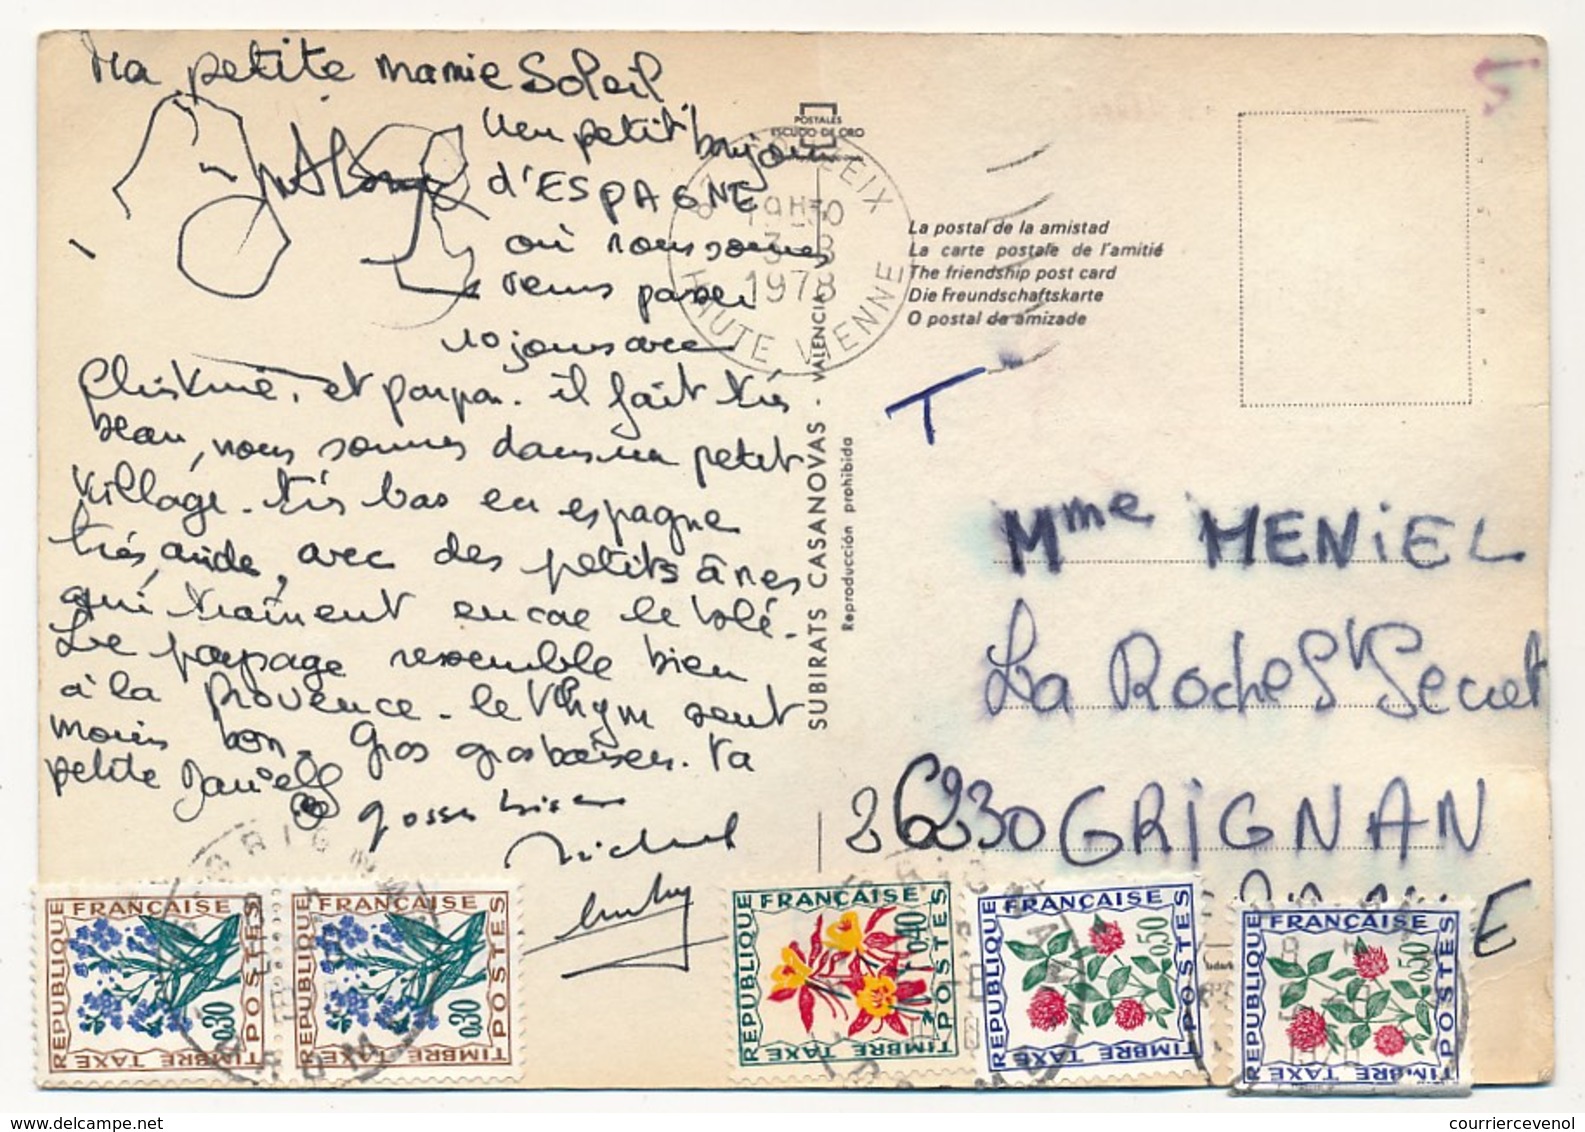 Ma petite mamie Soleil
Un petit bonjour
d'ESPAGNE
où nous sommes
venus passer
10 jours avec
Christine. et papa. il fait très
beau, nous sommes dans un petit
village. très bas en espagne
très aride, avec des petits ânes
qui traînent encore le blé.
Le paysage ressemble bien
à la Provence. le thym sent
moins bon. Gros gros baisers. ta
petite Danielle
grosses bises
Michel
POSTALES
ESCUDO DE ORO
19H30
3 - 8
1978
HAUTE VIENNE
La postal de la amistad
La carte postale de l'amitié
The friendship post card
Die Freundschaftskarte
O postal da amizade
SUBIRATS CASANOVAS - VALENCIA
Reproducción prohibida
T
Mme MENIEL
La Roche St Secret
26230 GRIGNAN
REPUBLIQUE FRANÇAISE POSTES 0,30 TIMBRE TAXE
REPUBLIQUE FRANÇAISE POSTES 0,30 TIMBRE TAXE
REPUBLIQUE FRANÇAISE POSTES 0,40 TIMBRE TAXE
REPUBLIQUE FRANÇAISE POSTES 0,50 TIMBRE TAXE
REPUBLIQUE FRANÇAISE POSTES 0,50 TIMBRE TAXE
www.delcampe.net
courriercevenol